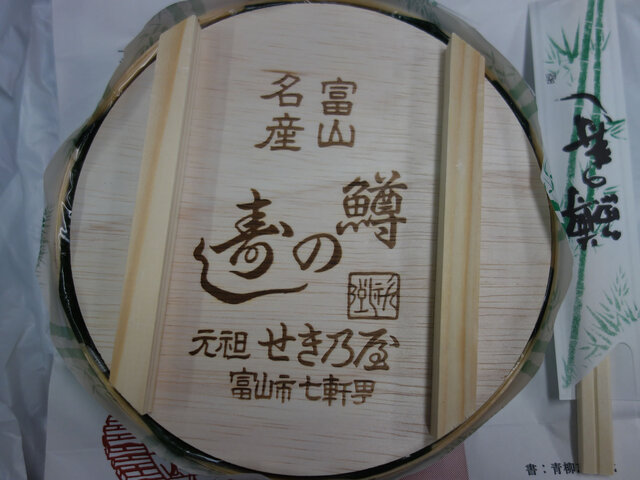 富山
名産
鱒
の
寿し
元祖 せき乃屋
富山市七軒町
鱒の寿し
書：青柳